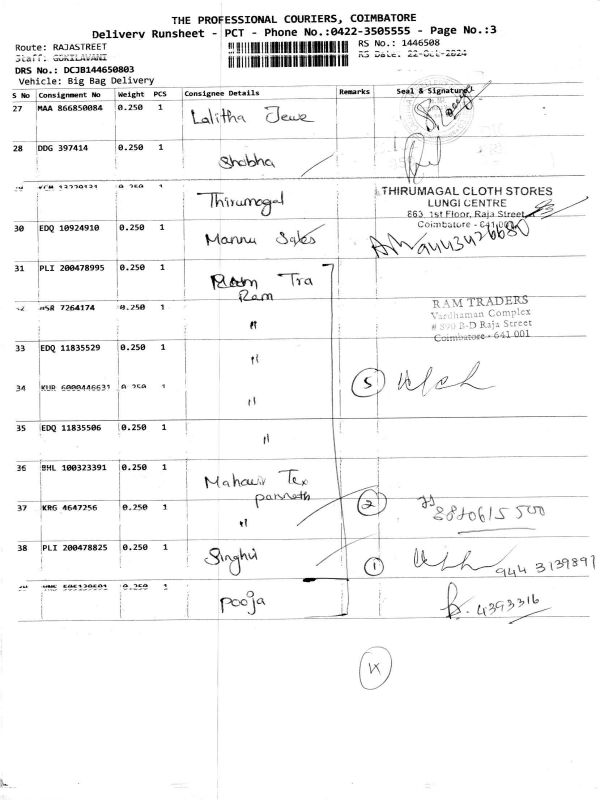 THE PROFESSIONAL COURIERS, COIMBATORE
Delivery Runsheet - PCT - Phone No.:0422-3505555 - Page No.:3
Route: RAJASTREET
RS No.: 1446508
Staff: GOKILAVANI
RS Date: 22-Oct-2024
DRS No.: DCJB144650803
Vehicle: Big Bag Delivery
S No Consignment No Weight PCS Consignee Details Remarks Seal & Signature
27 MAA 866850084 0.250 1 Lalitha Jewe
28 DDG 397414 0.250 1 Shobha
0.250 1 Thirumagal
THIRUMAGAL CLOTH STORES
LUNGI CENTRE
863, 1st Floor, Raja Street
Coimbatore - 641 001
30 EDQ 10924910 0.250 1 Mannu Sales
9443426680
31 PLI 200478995 0.250 1 Ram Tra
Ram
7264174 0.250 1 "
RAM TRADERS
Vardhaman Complex
# 890 B-D Raja Street
Coimbatore - 641 001
33 EDQ 11835529 0.250 1 "
34 KUR 6000446631 0.250 1 "
5
35 EDQ 11835506 0.250 1 "
36 BHL 100323391 0.250 1 Mahavir Tex
37 KRG 4647256 0.250 1 "
2
8880615500
38 PLI 200478825 0.250 1 Singhvi
1
944 3139897
0.250 1 Pooja
4393316